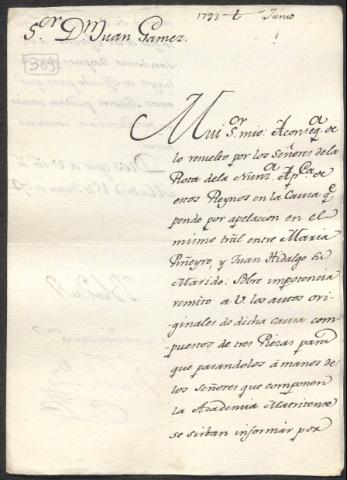 S.ᵒʳ D.ⁿ Juan Gamez.
Junio
389
Mui S.ᵒʳ mio: A conseq.ᵃ de
lo resuelto por los Señores de la
Rota de la Nunz.ᵃ Ap.ᶜᵃ de
estos Reynos en la Causa q.ᵉ
pende por apelacion en el
mismo trâl entre Maria
Piñeyro, y Juan Hidalgo su
Marido: Sobre impotencia
remito a V. los autos ori-
-ginales de dicha causa com-
-puestos de tres Piezas para
que pasandolos à manos de
los Señores que componen
la Academia Matritense
se sirban informar por